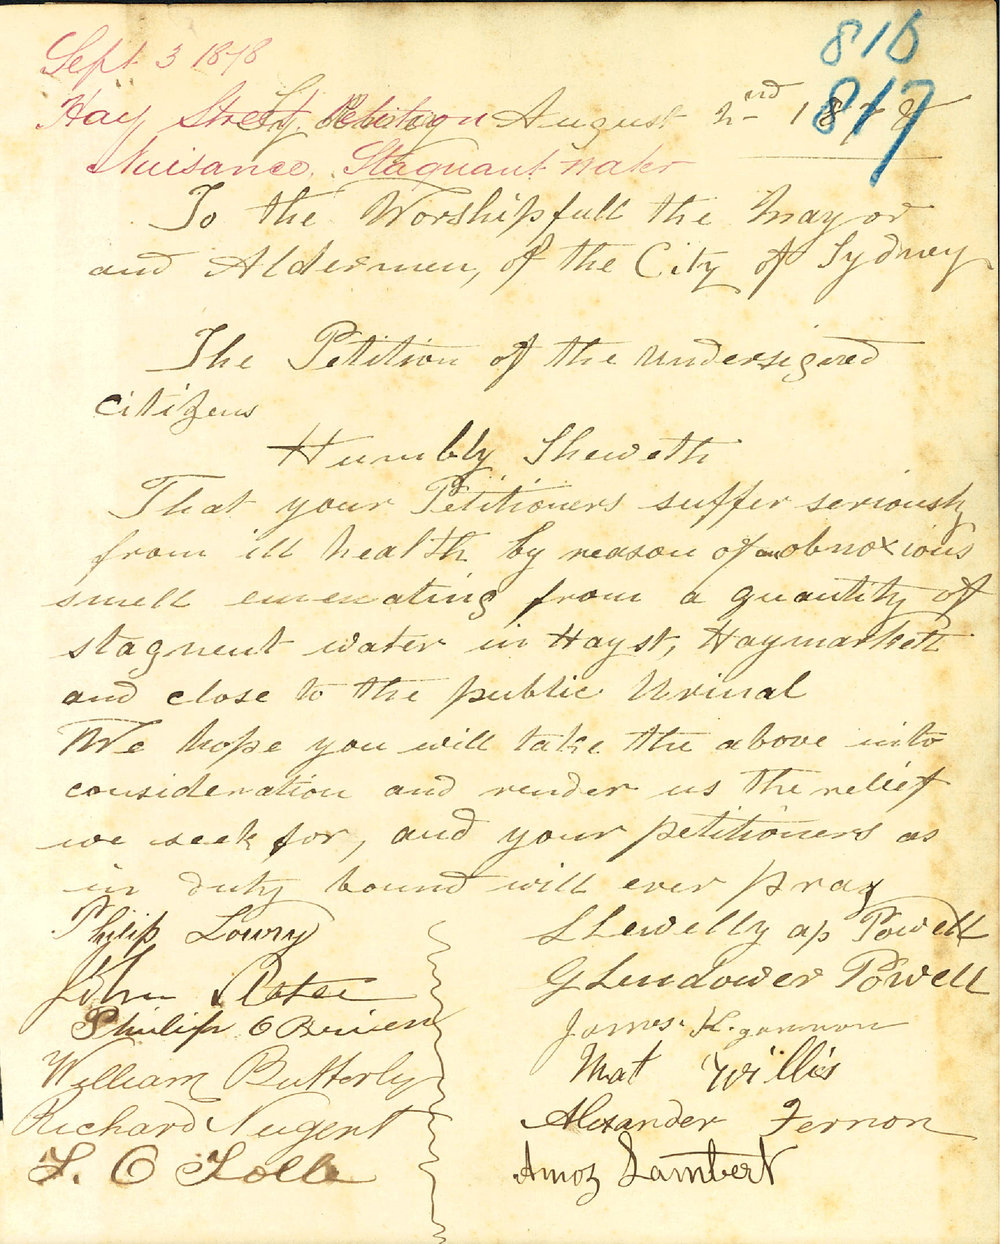 816
817
Sept 3 1878
Hay Street Petition
Nuisance. Stagnant Water
Sydney August 2nd 1878
To the Worshipfull the Mayor
and Aldermen, of the City of Sydney
The Petition of the undersigned
citizens
Humbly Sheweth
That your Petitioners suffer seriously
from ill health by reason of an obnoxious
smell emenating from a quantity of
stagnent water in Hay st, Haymarkett
and close to the public Urinal
We hope you will take the above into
consideration and render us the relief
we seek for, and your petitioners as
in duty bound will ever pray
Philip Lowry
John Slater
Philip OBrien
William Butterly
Richard Nugent
F. C Tolle
LLewelly ap Powell
GLendower Powell
James. K. gannon
Mat Willis
Alexander Fernon
Amoz Lambert